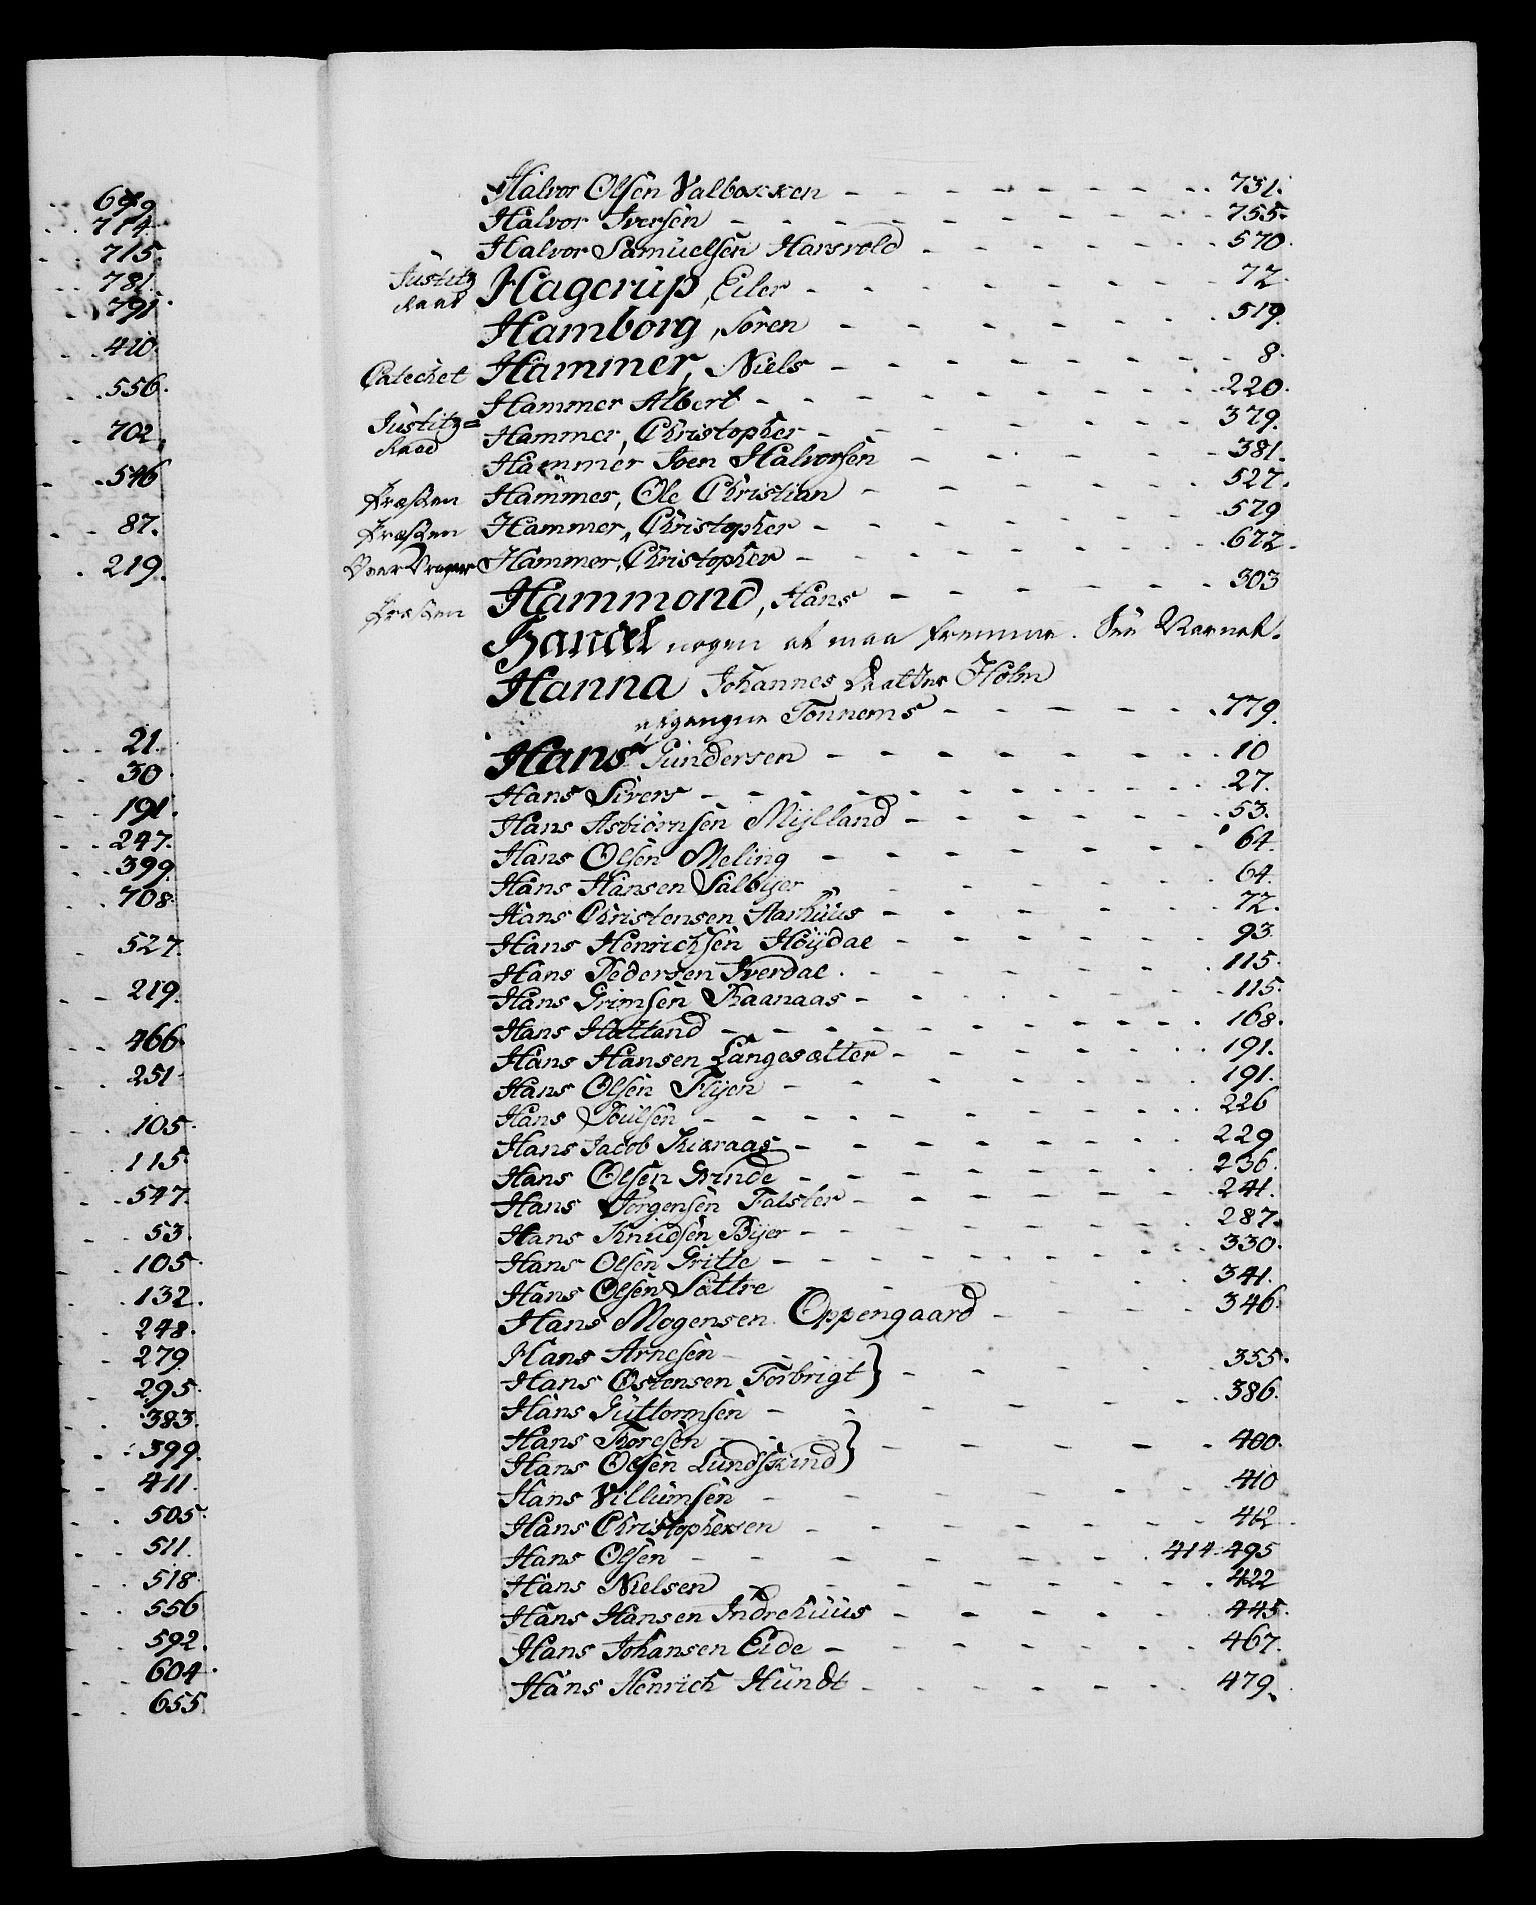 699
714
715.
781.
791.
410.
556.
702.
546
87.
219.
21.
30.
191.
247.
399.
708.
527.
219.
466.
251.
105.
115.
547.
53.
105.
132.
248.
279.
295.
383.
399.
411.
505.
511.
518.
556
592.
604.
655.
Halvor Olsen Valboxxen - - - 731.
Halvor Iversen - - - 755.
Halvor Samuelsen Harsvold - - - 570.
Justitz Raad Hagerup, Eiler - - - 72.
Hamborg, Sören - - - 519.
Catechet Hammer, Niels - - - 8.
Hammer Albert - - - 220.
Justitz= Raad Hammer, Christopher - - - 379.
Hammer Joen Halvorsen - - - 381.
Præsten Hammer, Ole Christian - - - 527.
Præsten Hammer, Christopher - - - 579
Hammer, Christopher - - - 672.
Præsten Hammond, Hans - - - 303
Handel nogen at maa fremme. See Navnet.
Hanna Johannes Daatter Holm
afgangne Tonnems - - - 779.
Hans Gundersen - - - 10
Hans Sivers - - - 27.
Hans Asbiörnsen Mylland - - - 53.
Hans Olsen Meling - - - 64.
Hans Hansen Salbyer - - - 64.
Hans Christensen Aarhuus - - - 72.
Hans Henrichsen Höydal - - - 93.
Hans Pedersen Sverdal - - - 115.
Hans Grimsen Raanaas - - - 115.
Hans Hatland - - - 168.
Hans Hansen Langesætter - - - 191.
Hans Olsen Flyen - - - 191.
Hans Poulsen - - - 226
Hans Jacob Skieraas - - - 229.
Hans Olsen Grinde - - - 236.
Hans Jörgensen Falster - - - 241.
Hans Knudsen Byer - - - 287.
Hans Olsen Gritte - - - 330.
Hans Olsen Sættre - - - 341.
Hans Mogensen Oppengaard - - - 346.
Hans Arnesen
Hans Ostensen Forbrigt } - - - 355.
Hans Guttormsen - - - 386.
Hans Thoresen
Hans Olsen Lundskind } - - - 400.
Hans Villumsen - - - 410
Hans Christophersen - - - 412.
Hans Olsen - - - 414. 495
Hans Nielsen - - - 422
Hans Hansen Indrehuus - - - 445.
Hans Johansen Eide - - - 467.
Hans Henrich Hundt - - - 479.